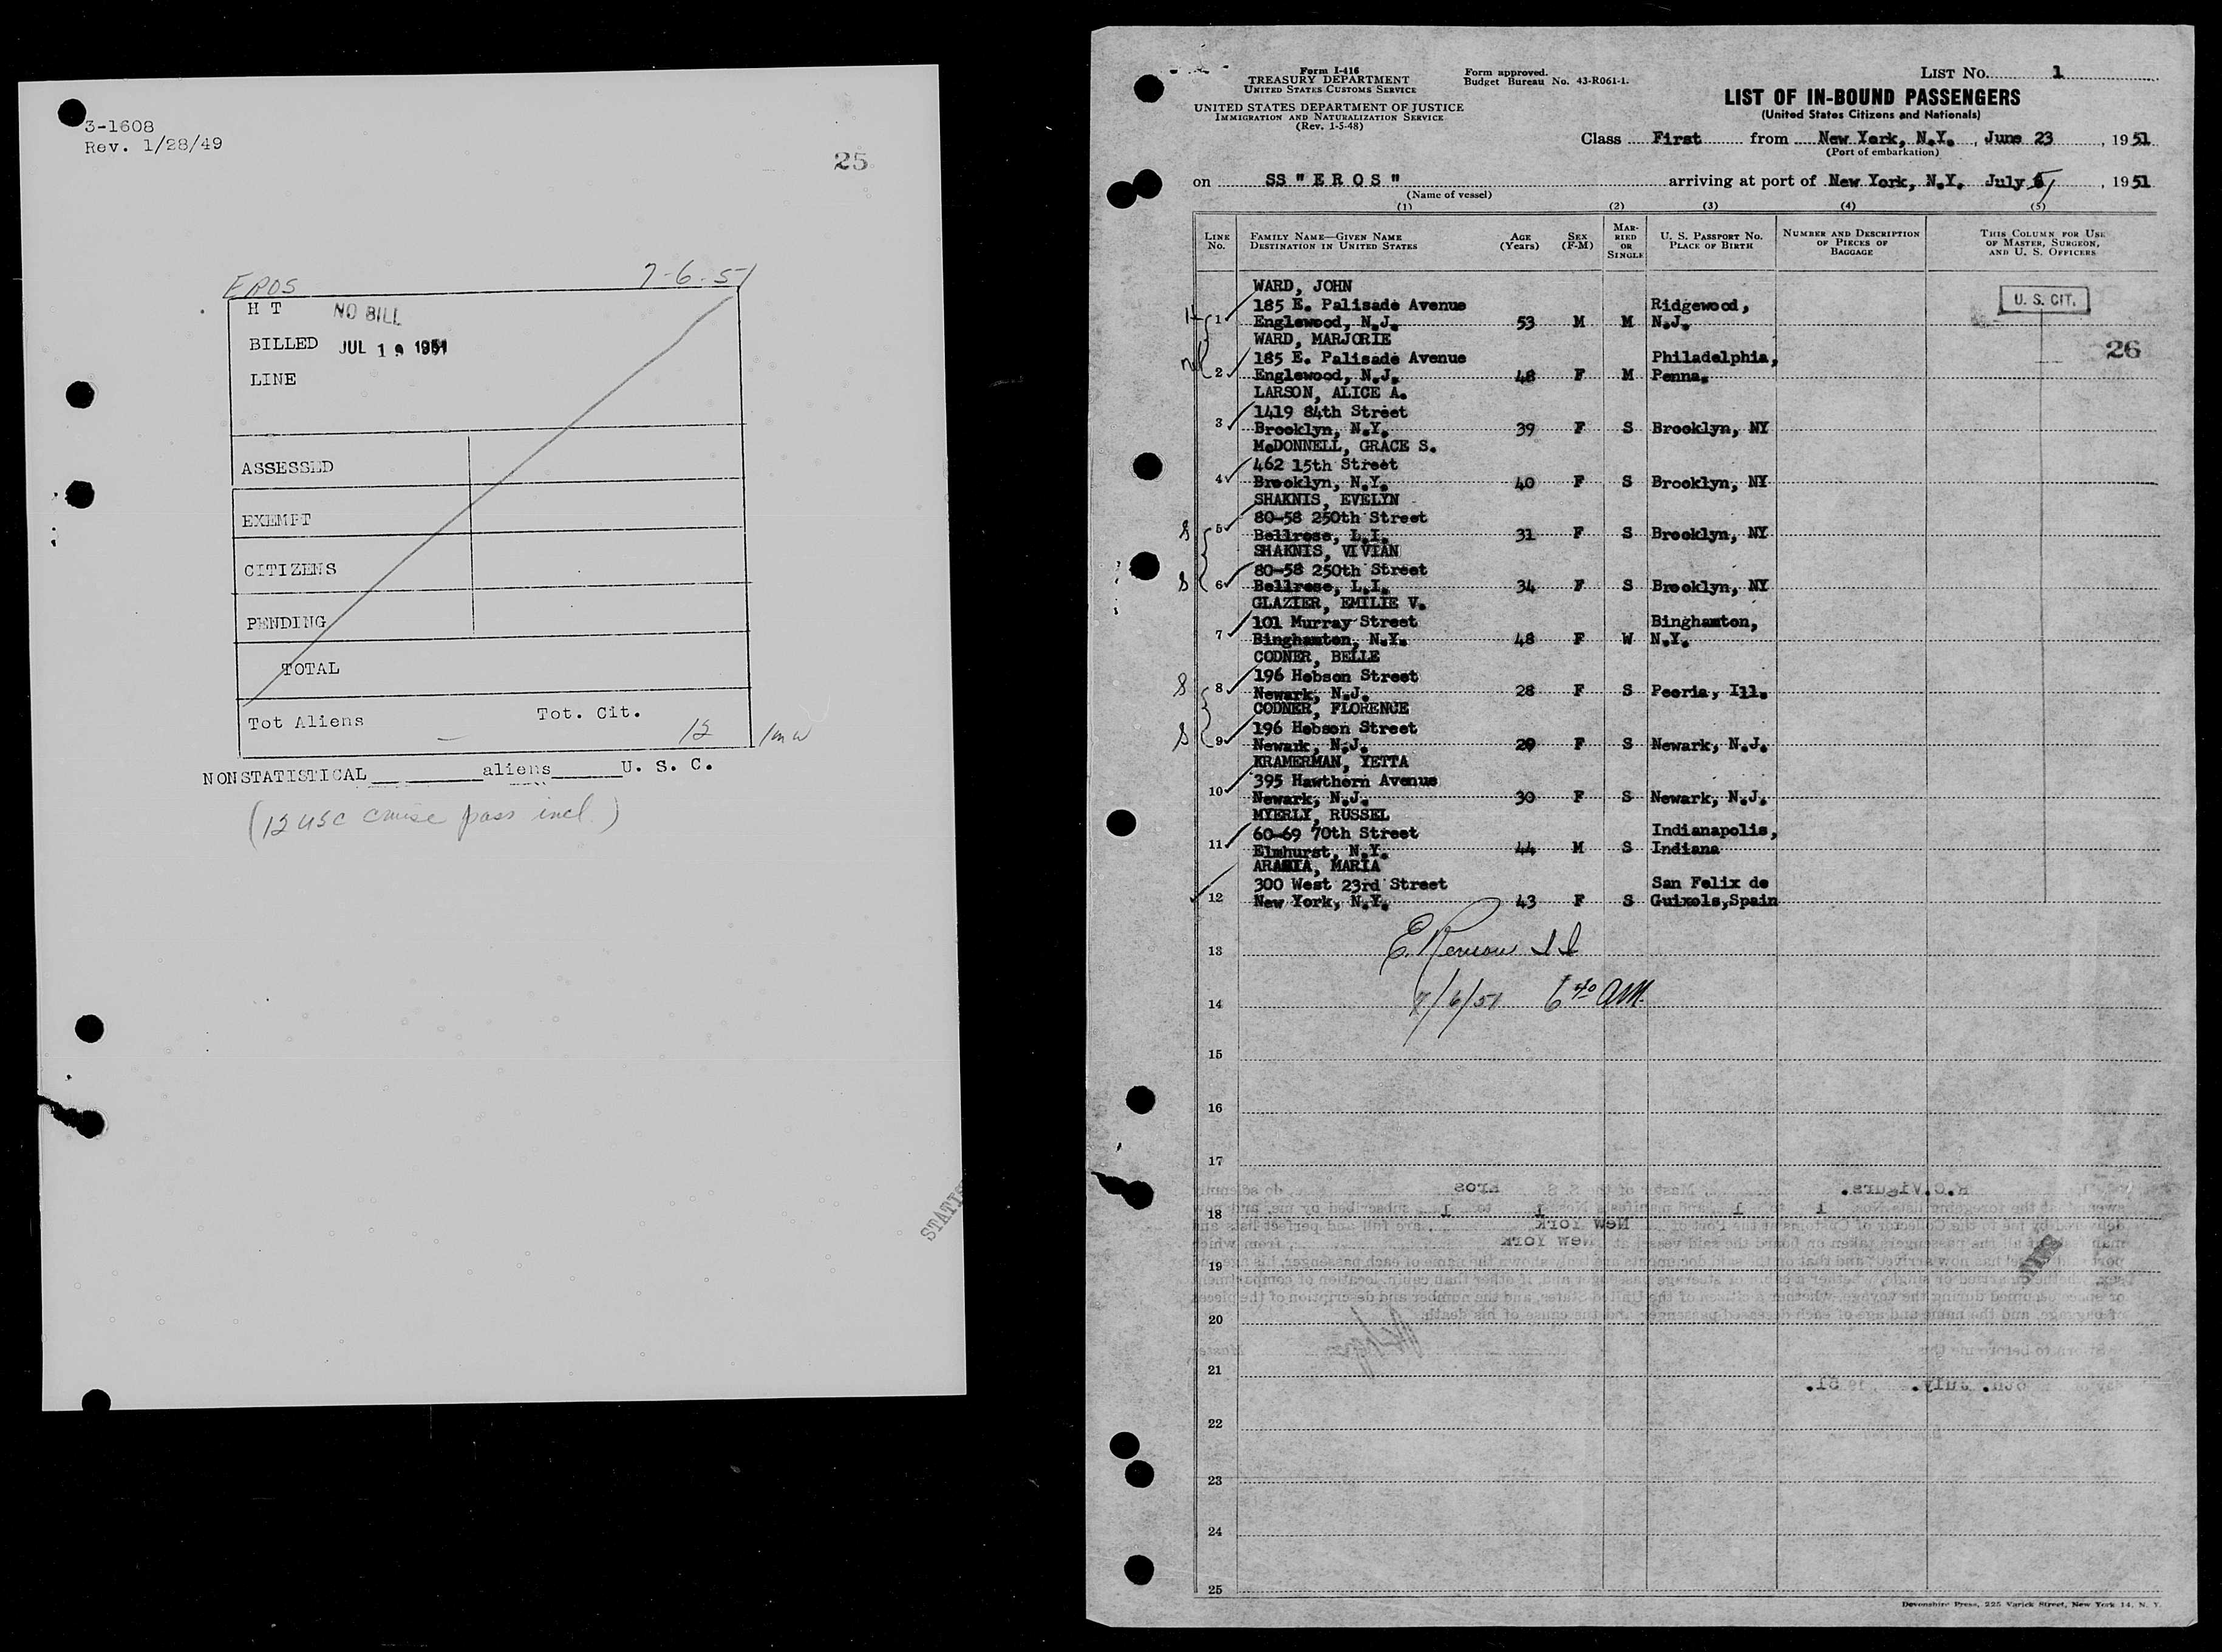 3-1608
Rev. 1/28/49
25
EROS 7-6-51
H T NO BILL
BILLED JUL 19 1951
LINE
ASSESSED
EXEMPT
CITIZENS
PENDING
TOTAL
Tot Aliens — Tot. Cit. 12
NONSTATISTICAL ______ aliens ______ U. S. C.
(12 USC cruise pass incl.)
Form I-416
TREASURY DEPARTMENT
UNITED STATES CUSTOMS SERVICE
UNITED STATES DEPARTMENT OF JUSTICE
IMMIGRATION AND NATURALIZATION SERVICE
(Rev. 1-5-48)
Form approved.
Budget Bureau No. 43-R061-1.
LIST No. 1
LIST OF IN-BOUND PASSENGERS
(United States Citizens and Nationals)
Class First from New York, N.Y., June 23, 1951
(Port of embarkation)
on SS "E R O S" arriving at port of New York, N.Y. July 5, 1951
(Name of vessel)
(1) (2) (3) (4) (5)
LINE No. FAMILY NAME—GIVEN NAME DESTINATION IN UNITED STATES AGE (Years) SEX (F-M) MARRIED OR SINGLE U. S. PASSPORT No. PLACE OF BIRTH NUMBER AND DESCRIPTION OF PIECES OF BAGGAGE THIS COLUMN FOR USE OF MASTER, SURGEON, AND U. S. OFFICERS
WARD, JOHN
185 E. Palisade Avenue Ridgewood, U. S. CIT.
1 Englewood, N.J. 53 M M N.J.
WARD, MARJORIE 26
185 E. Palisade Avenue Philadelphia,
2 Englewood, N.J. 48 F M Penna.
LARSON, ALICE A.
1419 84th Street
3 Brooklyn, N.Y. 39 F S Brooklyn, NY
McDONNELL, GRACE S.
462 15th Street
4 Brooklyn, N.Y. 40 F S Brooklyn, NY
SHAKNIS, EVELYN
80-58 250th Street
5 Bellrose, L.I. 31 F S Brooklyn, NY
SHAKNIS, VIVIAN
80-58 250th Street
6 Bellrose, L.I. 34 F S Brooklyn, NY
GLAZIER, EMILIE V.
101 Murray Street Binghamton,
7 Binghamton, N.Y. 48 F W N.Y.
CODNER, BELLE
196 Hobson Street
8 Newark, N.J. 28 F S Peoria, Ill.
CODNER, FLORENCE
196 Hobson Street
9 Newark, N.J. 29 F S Newark, N.J.
KRAMERMAN, YETTA
395 Hawthorn Avenue
10 Newark, N.J. 30 F S Newark, N.J.
MYERLY, RUSSEL
60-69 70th Street Indianapolis,
11 Elmhurst, N.Y. 44 M S Indiana
MARIA
300 West 23rd Street San Felix de
12 New York, N.Y. 43 F S Guixols, Spain
13
14 7/6/51 6 40 AM.
15
16
17
18
19
20
21
22
23
24
25
Devonshire Press, 225 Varick Street, New York 14, N. Y.